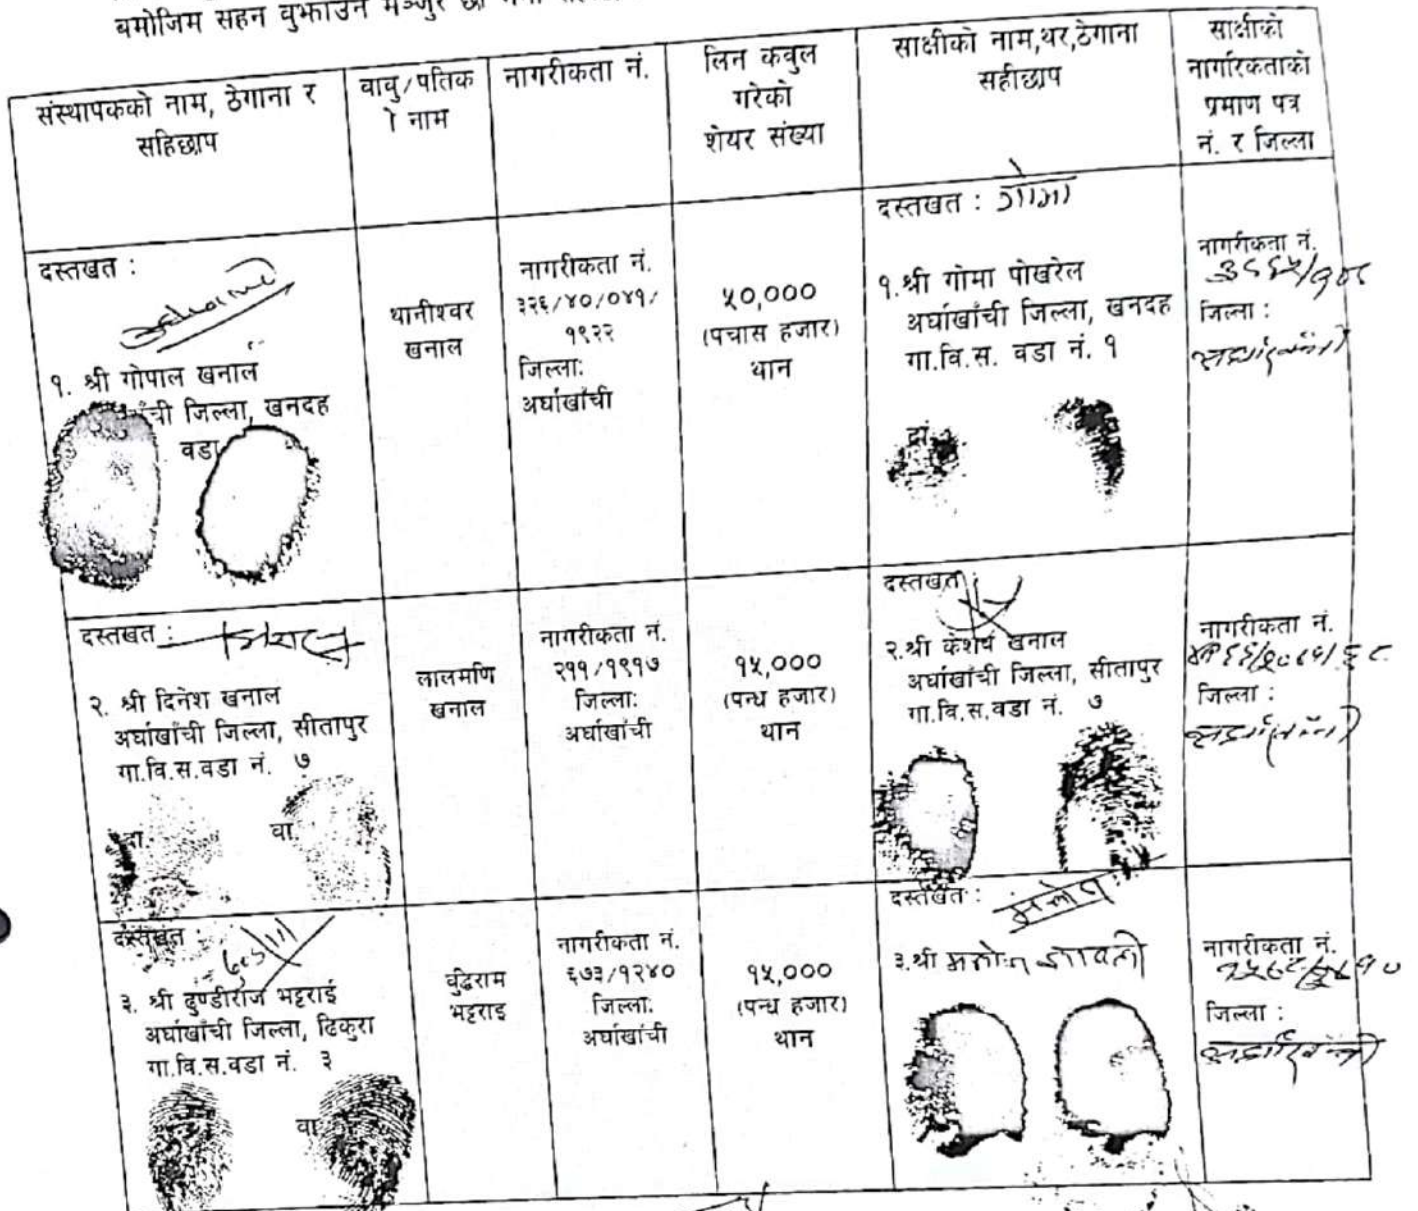 बमोजिम सहन वुझाउन मञ्जुर छौं
संस्थापकको नाम, ठेगाना र
सहिछाप
वावु/पतिक
ो नाम
नागरीकता नं.
लिन कवुल
गरेको
शेयर संख्या
साक्षीको नाम,थर,ठेगाना
सहीछाप
साक्षीको
नागरिकताको
प्रमाण पत्र
नं. र जिल्ला
दस्तखत :
१. श्री गोपाल खनाल
ची जिल्ला, खनदह
वडा
थानीश्वर
खनाल
नागरीकता नं.
३२६/४०/०४१/
१९२२
जिल्ला:
अर्घाखाँची
५०,०००
(पचास हजार)
थान
दस्तखत : गोमा
१.श्री गोमा पोखरेल
अर्घाखाँची जिल्ला, खनदह
गा.वि.स. वडा नं. १
दा.
नागरीकता नं.
जिल्ला :
दस्तखत :
२. श्री दिनेश खनाल
अर्घाखाँची जिल्ला, सीतापुर
गा.वि.स.वडा नं. ७
दा.
वा.
लालमणि
खनाल
नागरीकता नं.
२११/१९१७
जिल्ला:
अर्घाखांची
१५,०००
(पन्ध हजार)
थान
दस्तखत
२.श्री केशर्ष खनाल
अर्घाखाँची जिल्ला, सीतापुर
गा.वि.स.वडा नं. ७
नागरीकता नं.
जिल्ला :
दस्तखत :
३. श्री ढुण्डीराज भट्टराई
अर्घाखाँची जिल्ला, ढिकुरा
गा.वि.स.वडा नं. ३
वा
वुद्धिराम
भट्टराइ
नागरीकता नं.
६७३/१२४०
जिल्ला:
अर्घाखांची
१५,०००
(पन्ध हजार)
थान
दस्तखत :
३.श्री
नागरीकता नं.
जिल्ला :